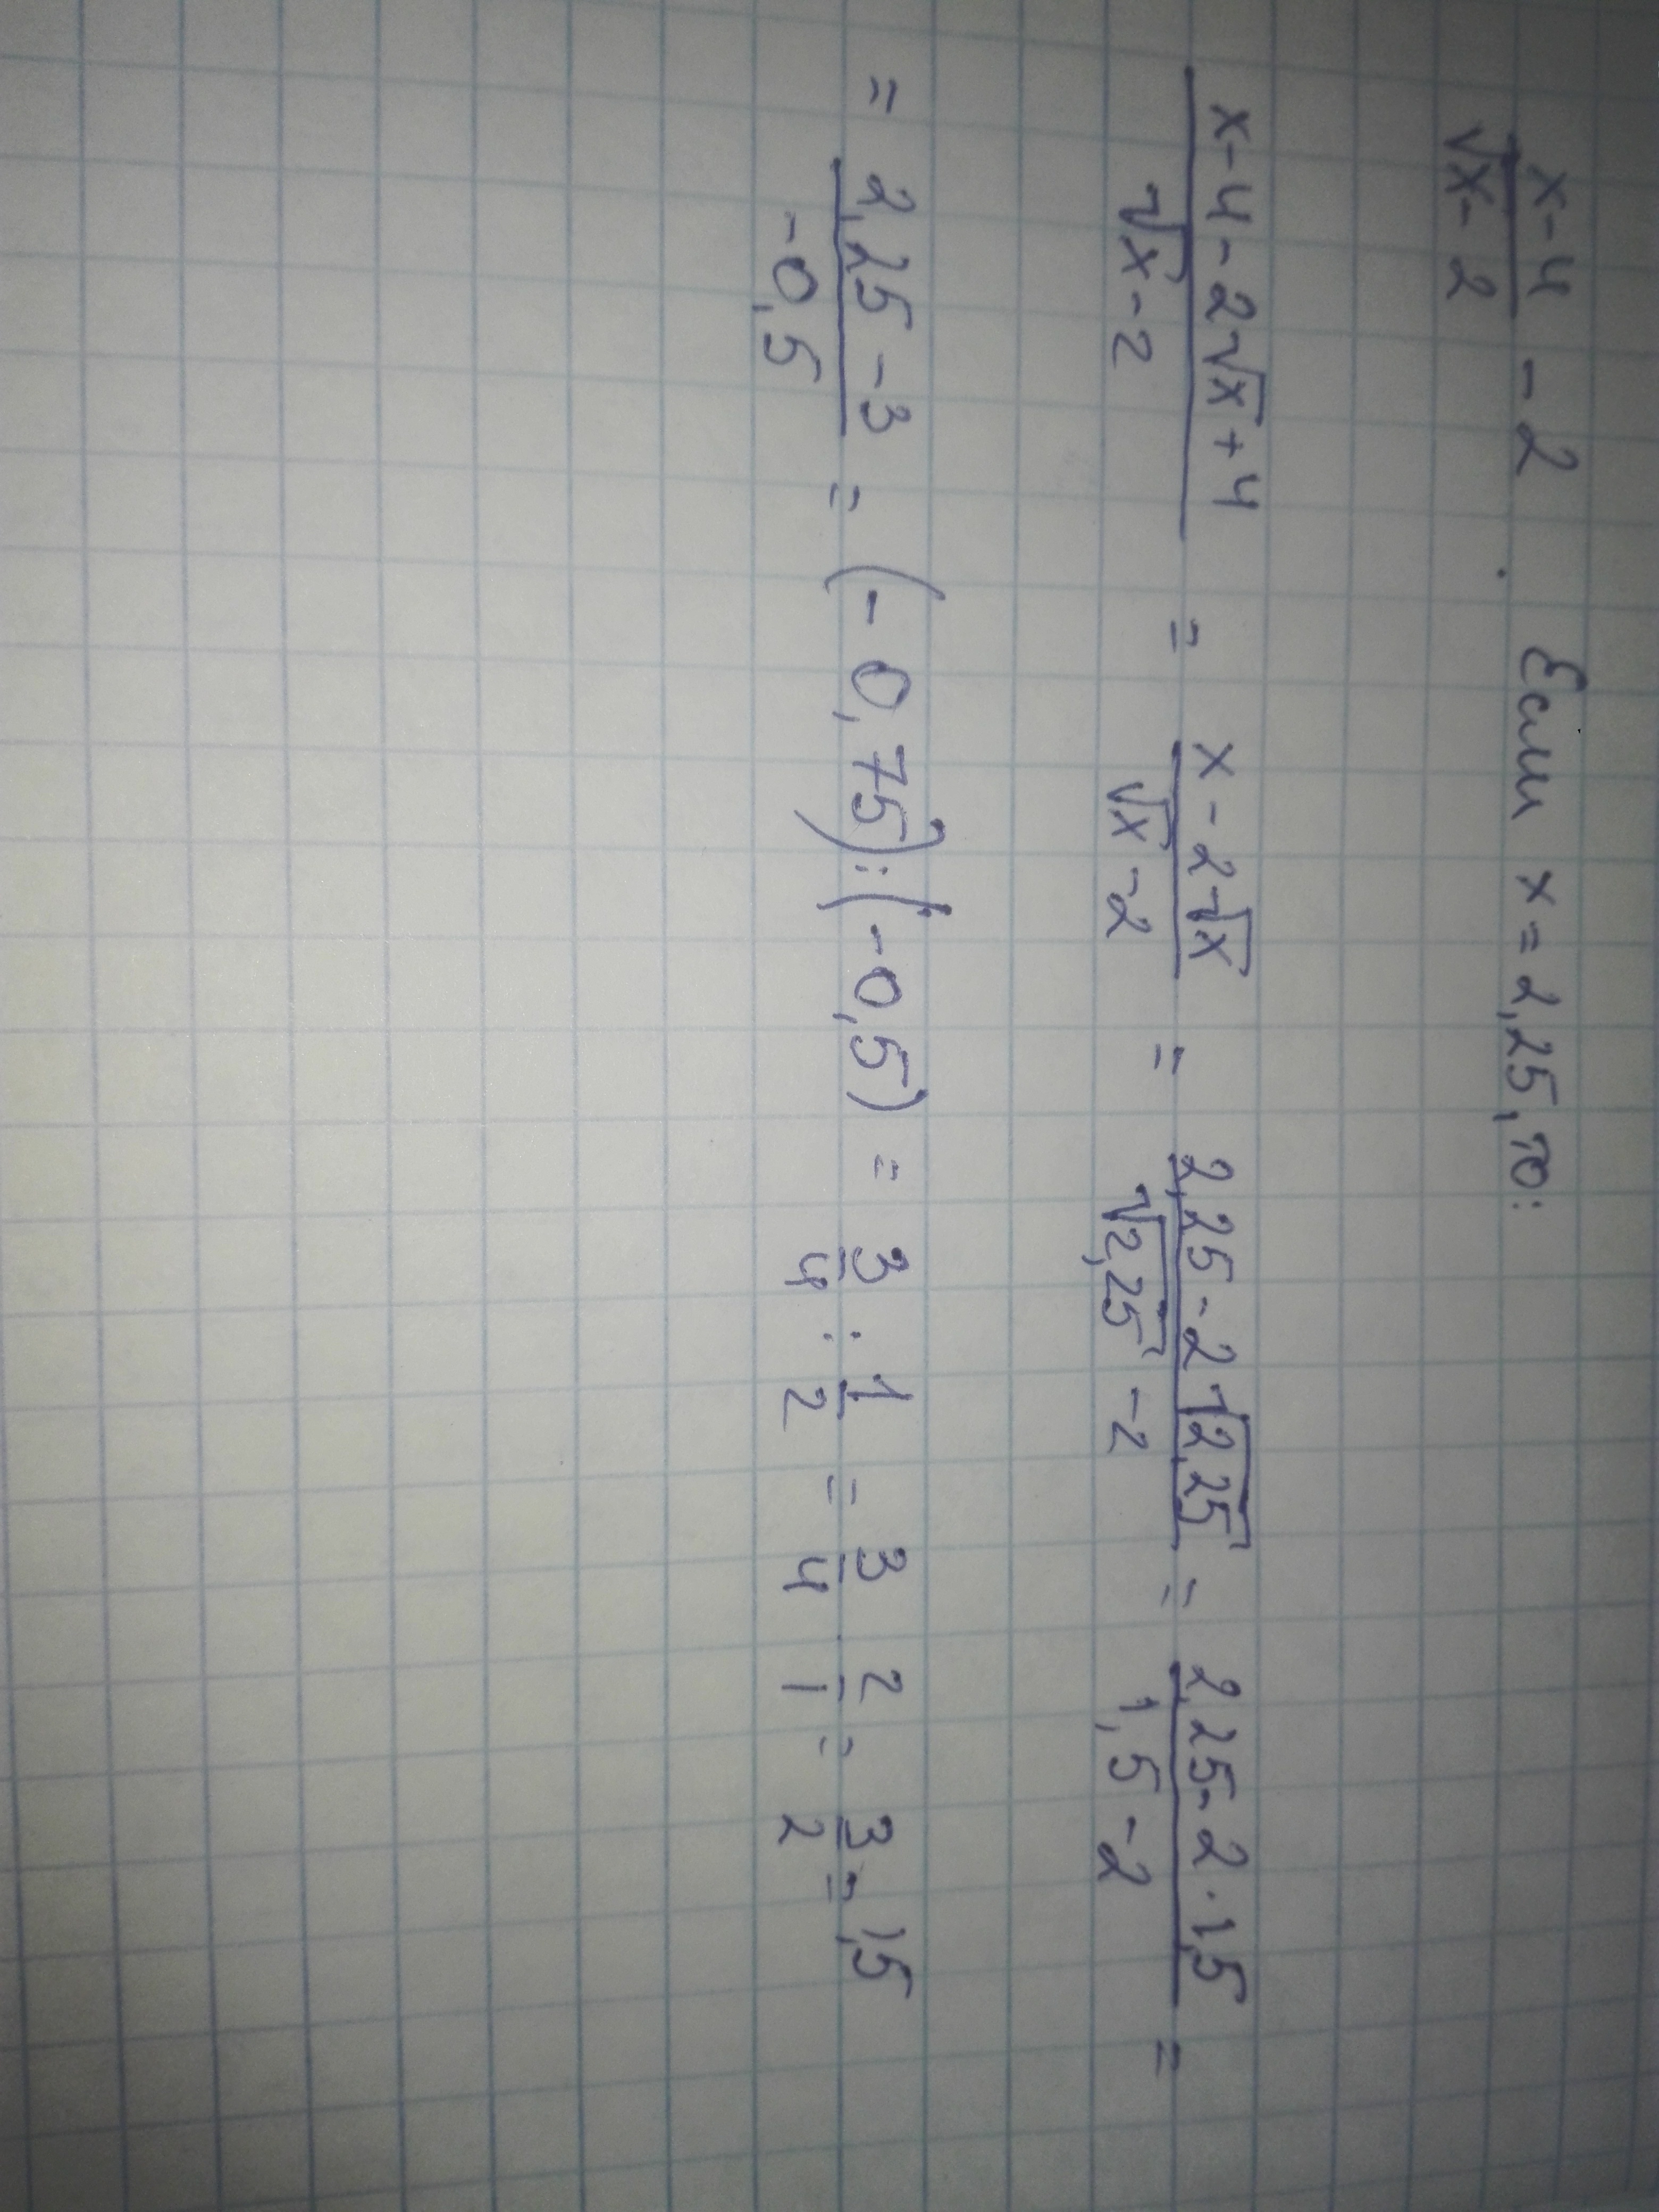 (x-4)/(√x-2) - 2. Если x=2,25, то:
(x-4-2√x+4)/(√x-2) = (x-2√x)/(√x-2) = (2,25-2√2,25)/(√2,25-2) = (2,25-2·1,5)/(1,5-2) =
= (2,25-3)/(-0,5) = (-0,75):(-0,5) = 3/4 : 1/2 = 3/4 · 2/1 = 3/2 = 1,5